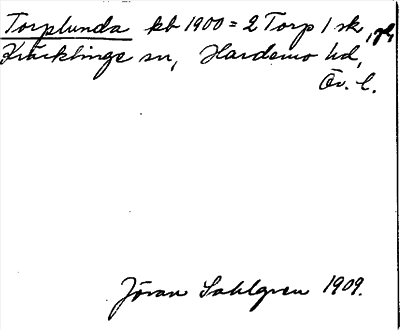 Torplunda kb 1900 = 2 Torp 1 sk,
Kräcklinge sn, Hardemo hd,
Ör. l.
Jöran Sahlgren 1909.